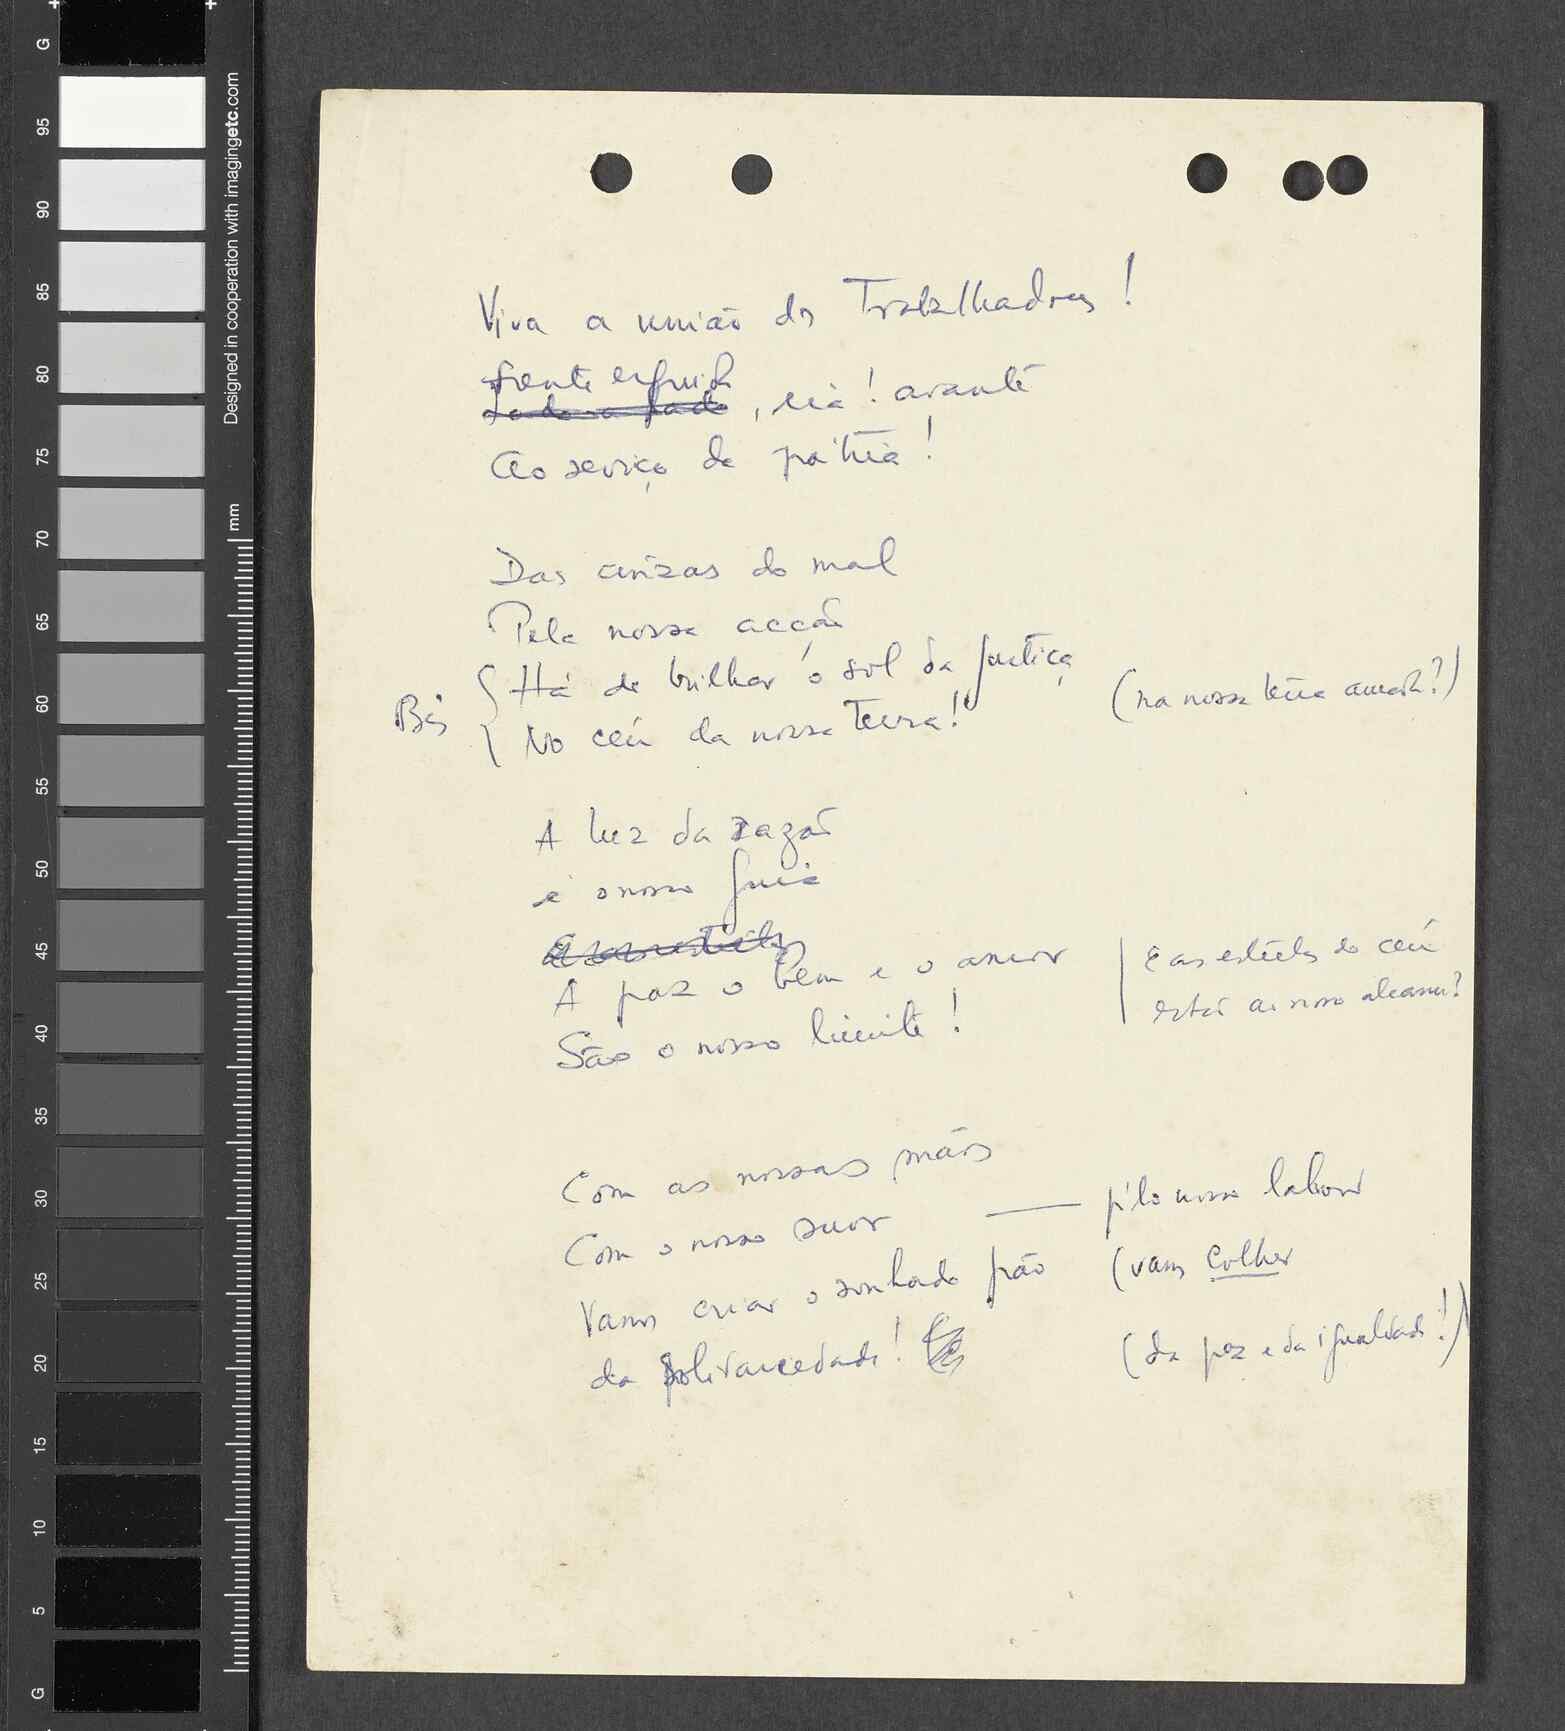 Viva a união dos Trabalhadores!
frente erguida
Lado a lado, eia! avante
Ao serviço da pátria!
Das cinzas do mal
Pela nossa acção
Há de brilhar o sol da justiça
Bis
No céu da nossa Terra! (na nossa terra amada?)
A luz da razão
é o nosso guia
A paz o bem e o amor
E as estrelas do céu
São o nosso limite!
estão ao nosso alcance?
Com as nossas mãos
Com o nosso suor — pelo nosso labor
Vamos criar o sonhado pão (vamos colher
da solidariedade! (da paz e da igualdade!)
G
95
90
85
80
75
70
65
60
55
50
45
40
35
30
25
20
15
10
5
G
Designed in cooperation with imagingetc.com
mm